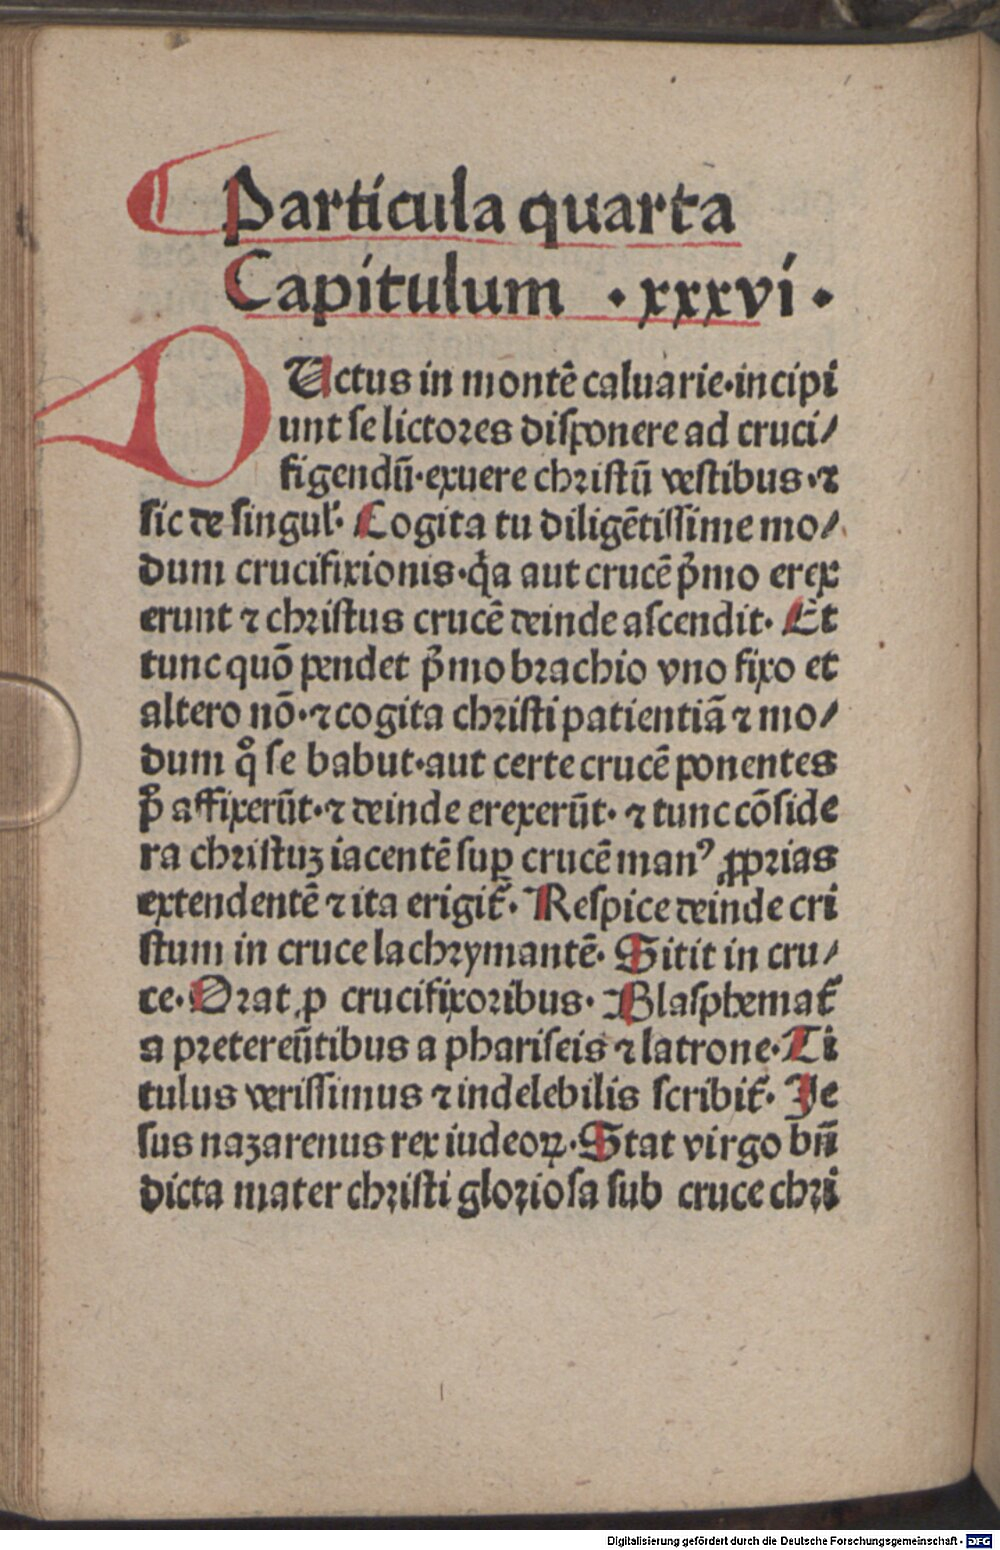 Particula quarta
Capitulum · xxxvi ·
DUctus in montē caluarie·incipi
unt se lictores disponere ad cruci/
figendū·exuere christū vestibus·⁊
sic de singul'· Cogita tu diligētissime mo/
dum crucifixionis·q̇a aut crucē p̄mo erex
erunt ⁊ christus crucē deinde ascendit· Et
tunc quō pendet p̄mo brachio vno fixo et
altero nō·⁊ cogita christi patientiā ⁊ mo/
dum qͦ se babut·aut certe crucē ponentes
pͥ affixerūt·⁊ deinde erexerūt· ⁊ tunc cōside
ra christuꝫ iacentē suꝑ crucē manꝰ ꝓprias
extendentē ⁊ ita erigit᷑· Respice deinde cri
stum in cruce lachrymantē· Sitit in cru/
ce· Orat ꝓ crucifixoribus· Blasphemat᷑
a pretereūtibus a phariseis ⁊ latrone· Ti
tulus verissimus ⁊ indelebilis scribit᷑· Je
sus nazarenus rex iudeoꝝ· Stat virgo bn̄
dicta mater christi gloriosa sub cruce chri
Digitalisierung gefördert durch die Deutsche Forschungsgemeinschaft - DFG